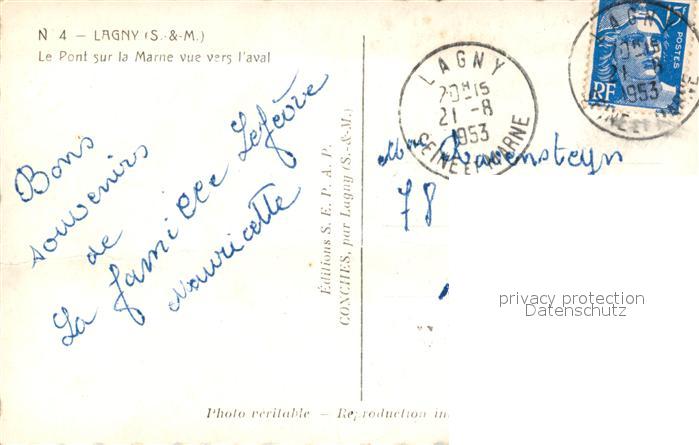 N 4 — LAGNY (S.-&-M.)
Le Pont sur la Marne vue vers l'aval
Bons
souvenirs
de
La famille Lefèvre
Mauricette
Editions S. E. P. A. P.
CONCHES, par Lagny (S.-&-M.)
LAGNY
20H15
21-8
1953
SEINE ET MARNE
15F
POSTES
RF
LAGNY
20H15
21-8
1953
SEINE ET MARNE
Mme Ravensteyn
78
privacy protection
Datenschutz
Photo véritable — Reproduction in